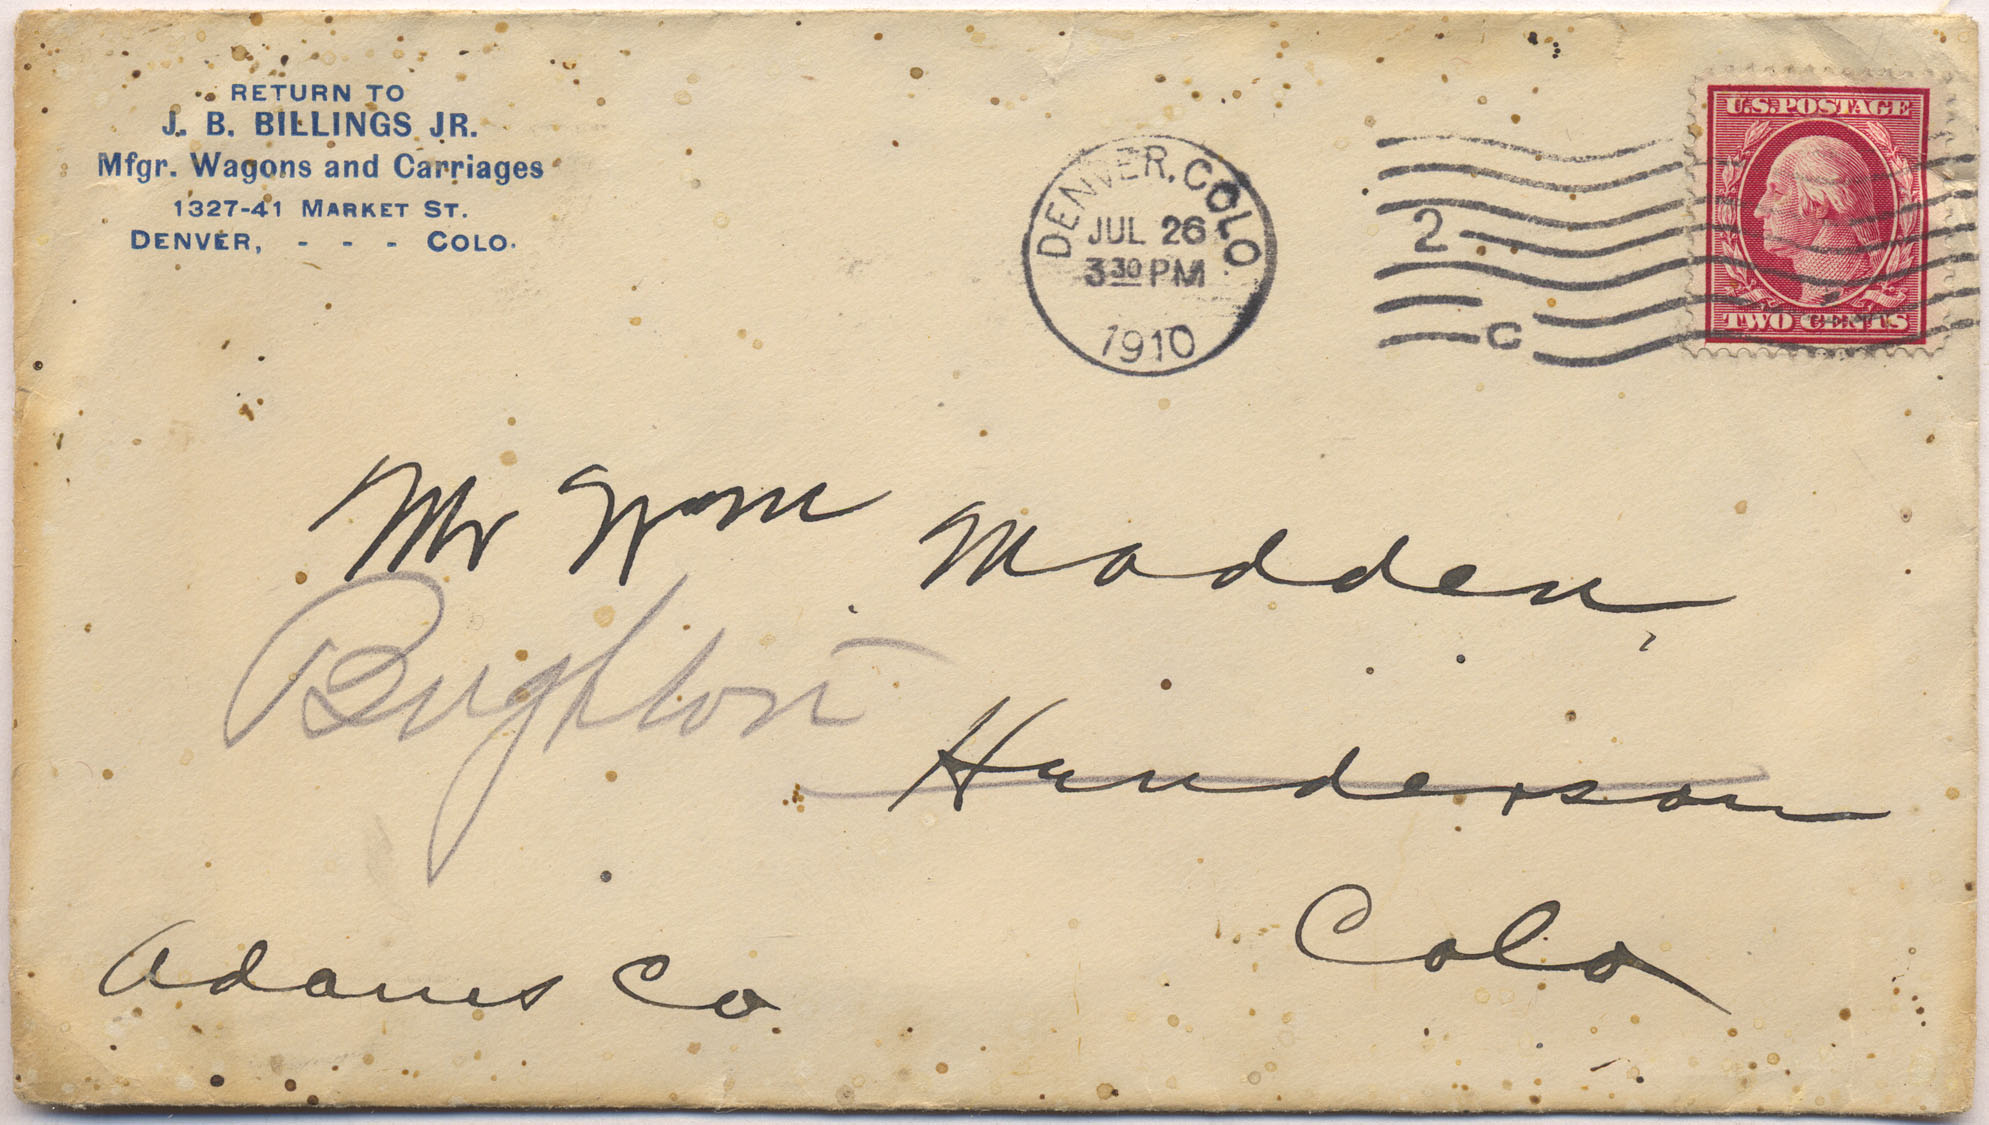 RETURN TO
J. B. BILLINGS JR.
Mfgr. Wagons and Carriages
1327-41 MARKET ST.
DENVER, - - - COLO.
DENVER, COLO
JUL 26
3 30 PM
1910
2
C
U.S. POSTAGE
TWO CENTS
Mr Wm Madden,
Brighton
Henderson
Colo
Adams Co